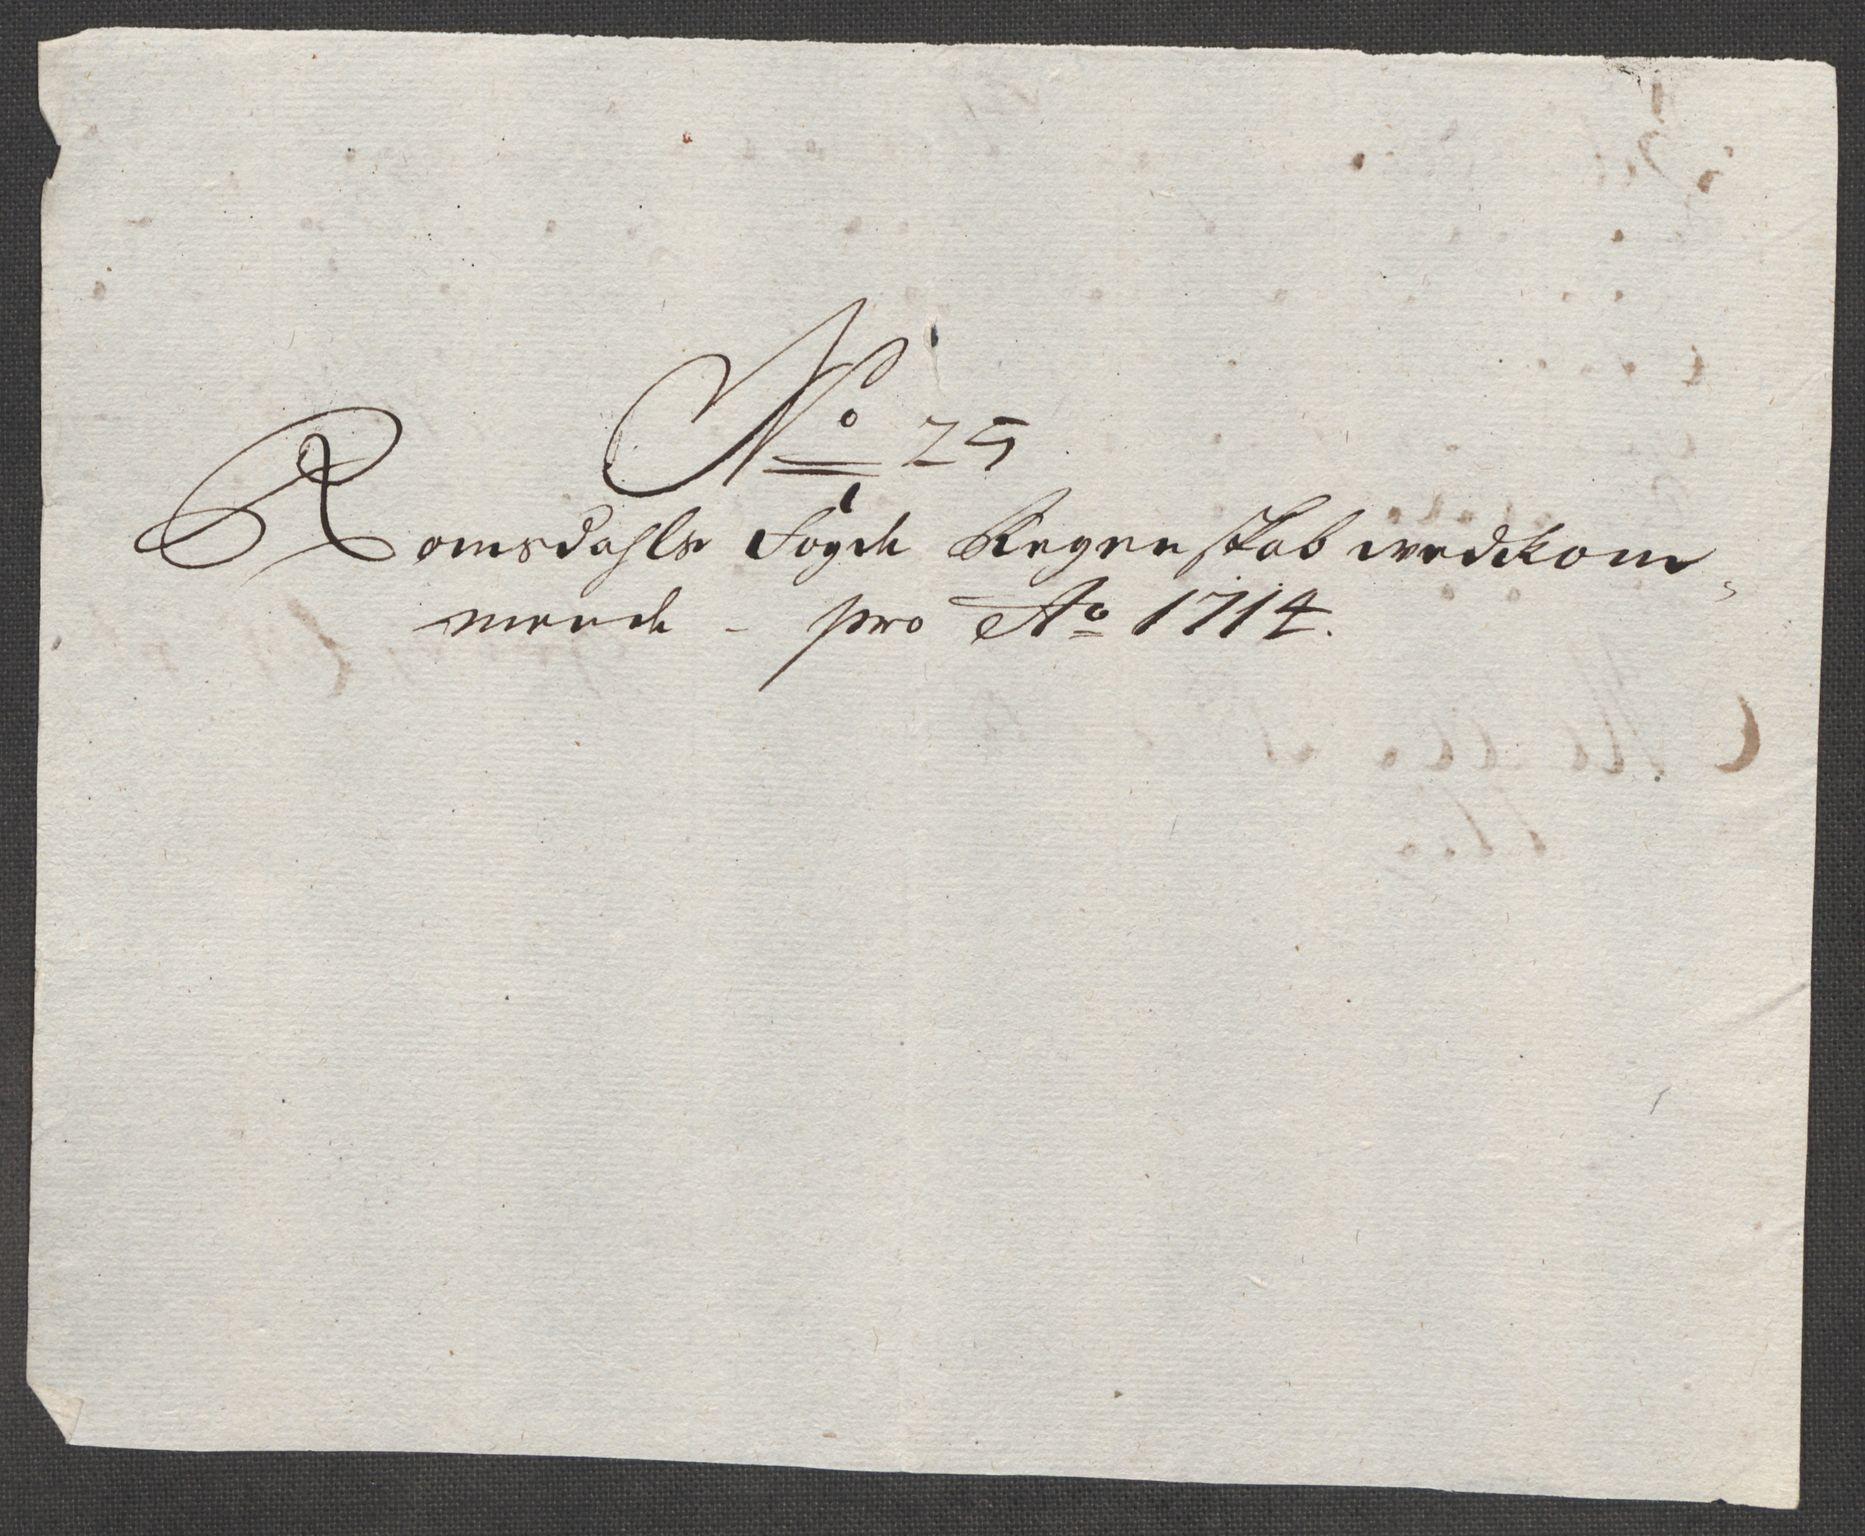 No 25
Romsdahls Fogde Regenskab wedkom-
mende - pro Ao 1714.